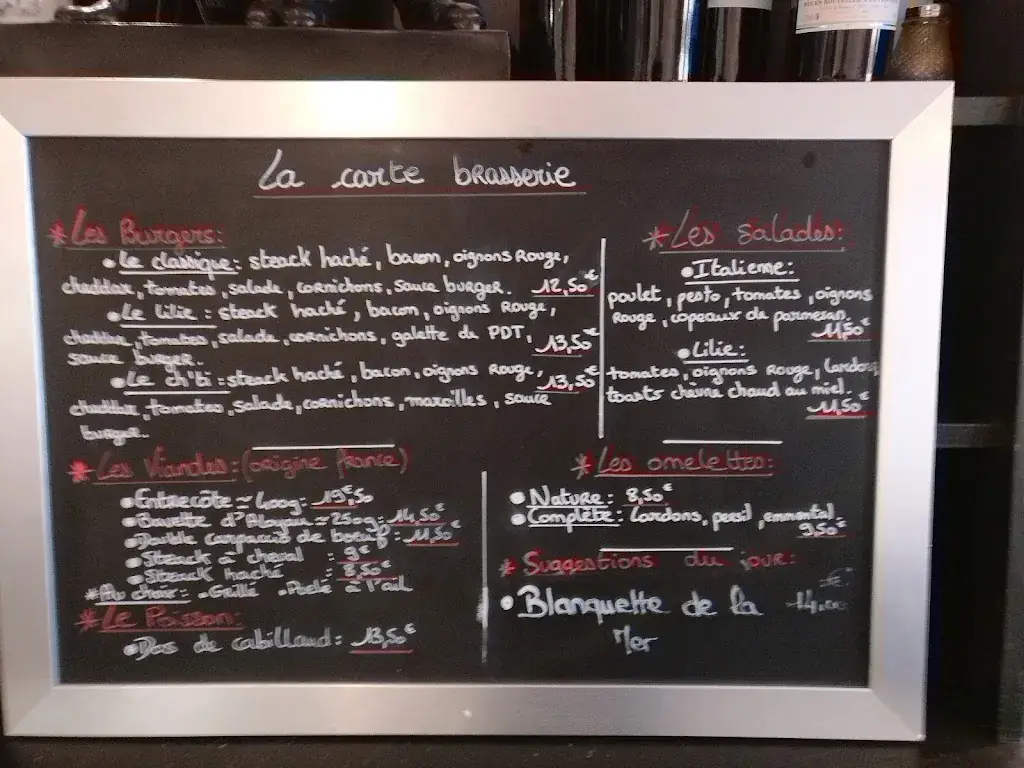 La carte brasserie
*Les Burgers:
•Le classique: steack haché, bacon, oignons Rouge,
cheddar, tomates, salade, cornichons, sauce burger. 12,50€
•Le Lilie: steack haché, bacon, oignons Rouge,
cheddar, tomates, salade, cornichons, galette de PDT, 13,50€
sauce burger.
•Le ch'bi: steack haché, bacon, oignons Rouge, 13,50€
cheddar, tomates, salade, cornichons, maroilles, sauce
burger.
*Les Salades:
•Italienne:
poulet, pesto, tomates, oignons
Rouge, copeaux de parmesan.
11,50€
•Lilie:
tomates, oignons Rouge, lardons,
toasts chèvre chaud au miel.
11,50€
*Les Viandes: (origine france)
•Entrecôte ≃ 400g: 19€50
•Bavette d'Aloyau ≃ 250g: 14,50€
•Double carpaccio de boeuf: 11,50€
•Steack à cheval : 9€
•Steack haché : 8,50€
*Au choix: •Grillé •Poêlé à l'ail
*Le Poisson:
•Dos de cabillaud: 13,50€
*Les omelettes:
•Nature: 8,50€
•Complète: lardons, persil, emmental
9,50€
*Suggestions du jour:
•Blanquette de la 14,00€
Mer